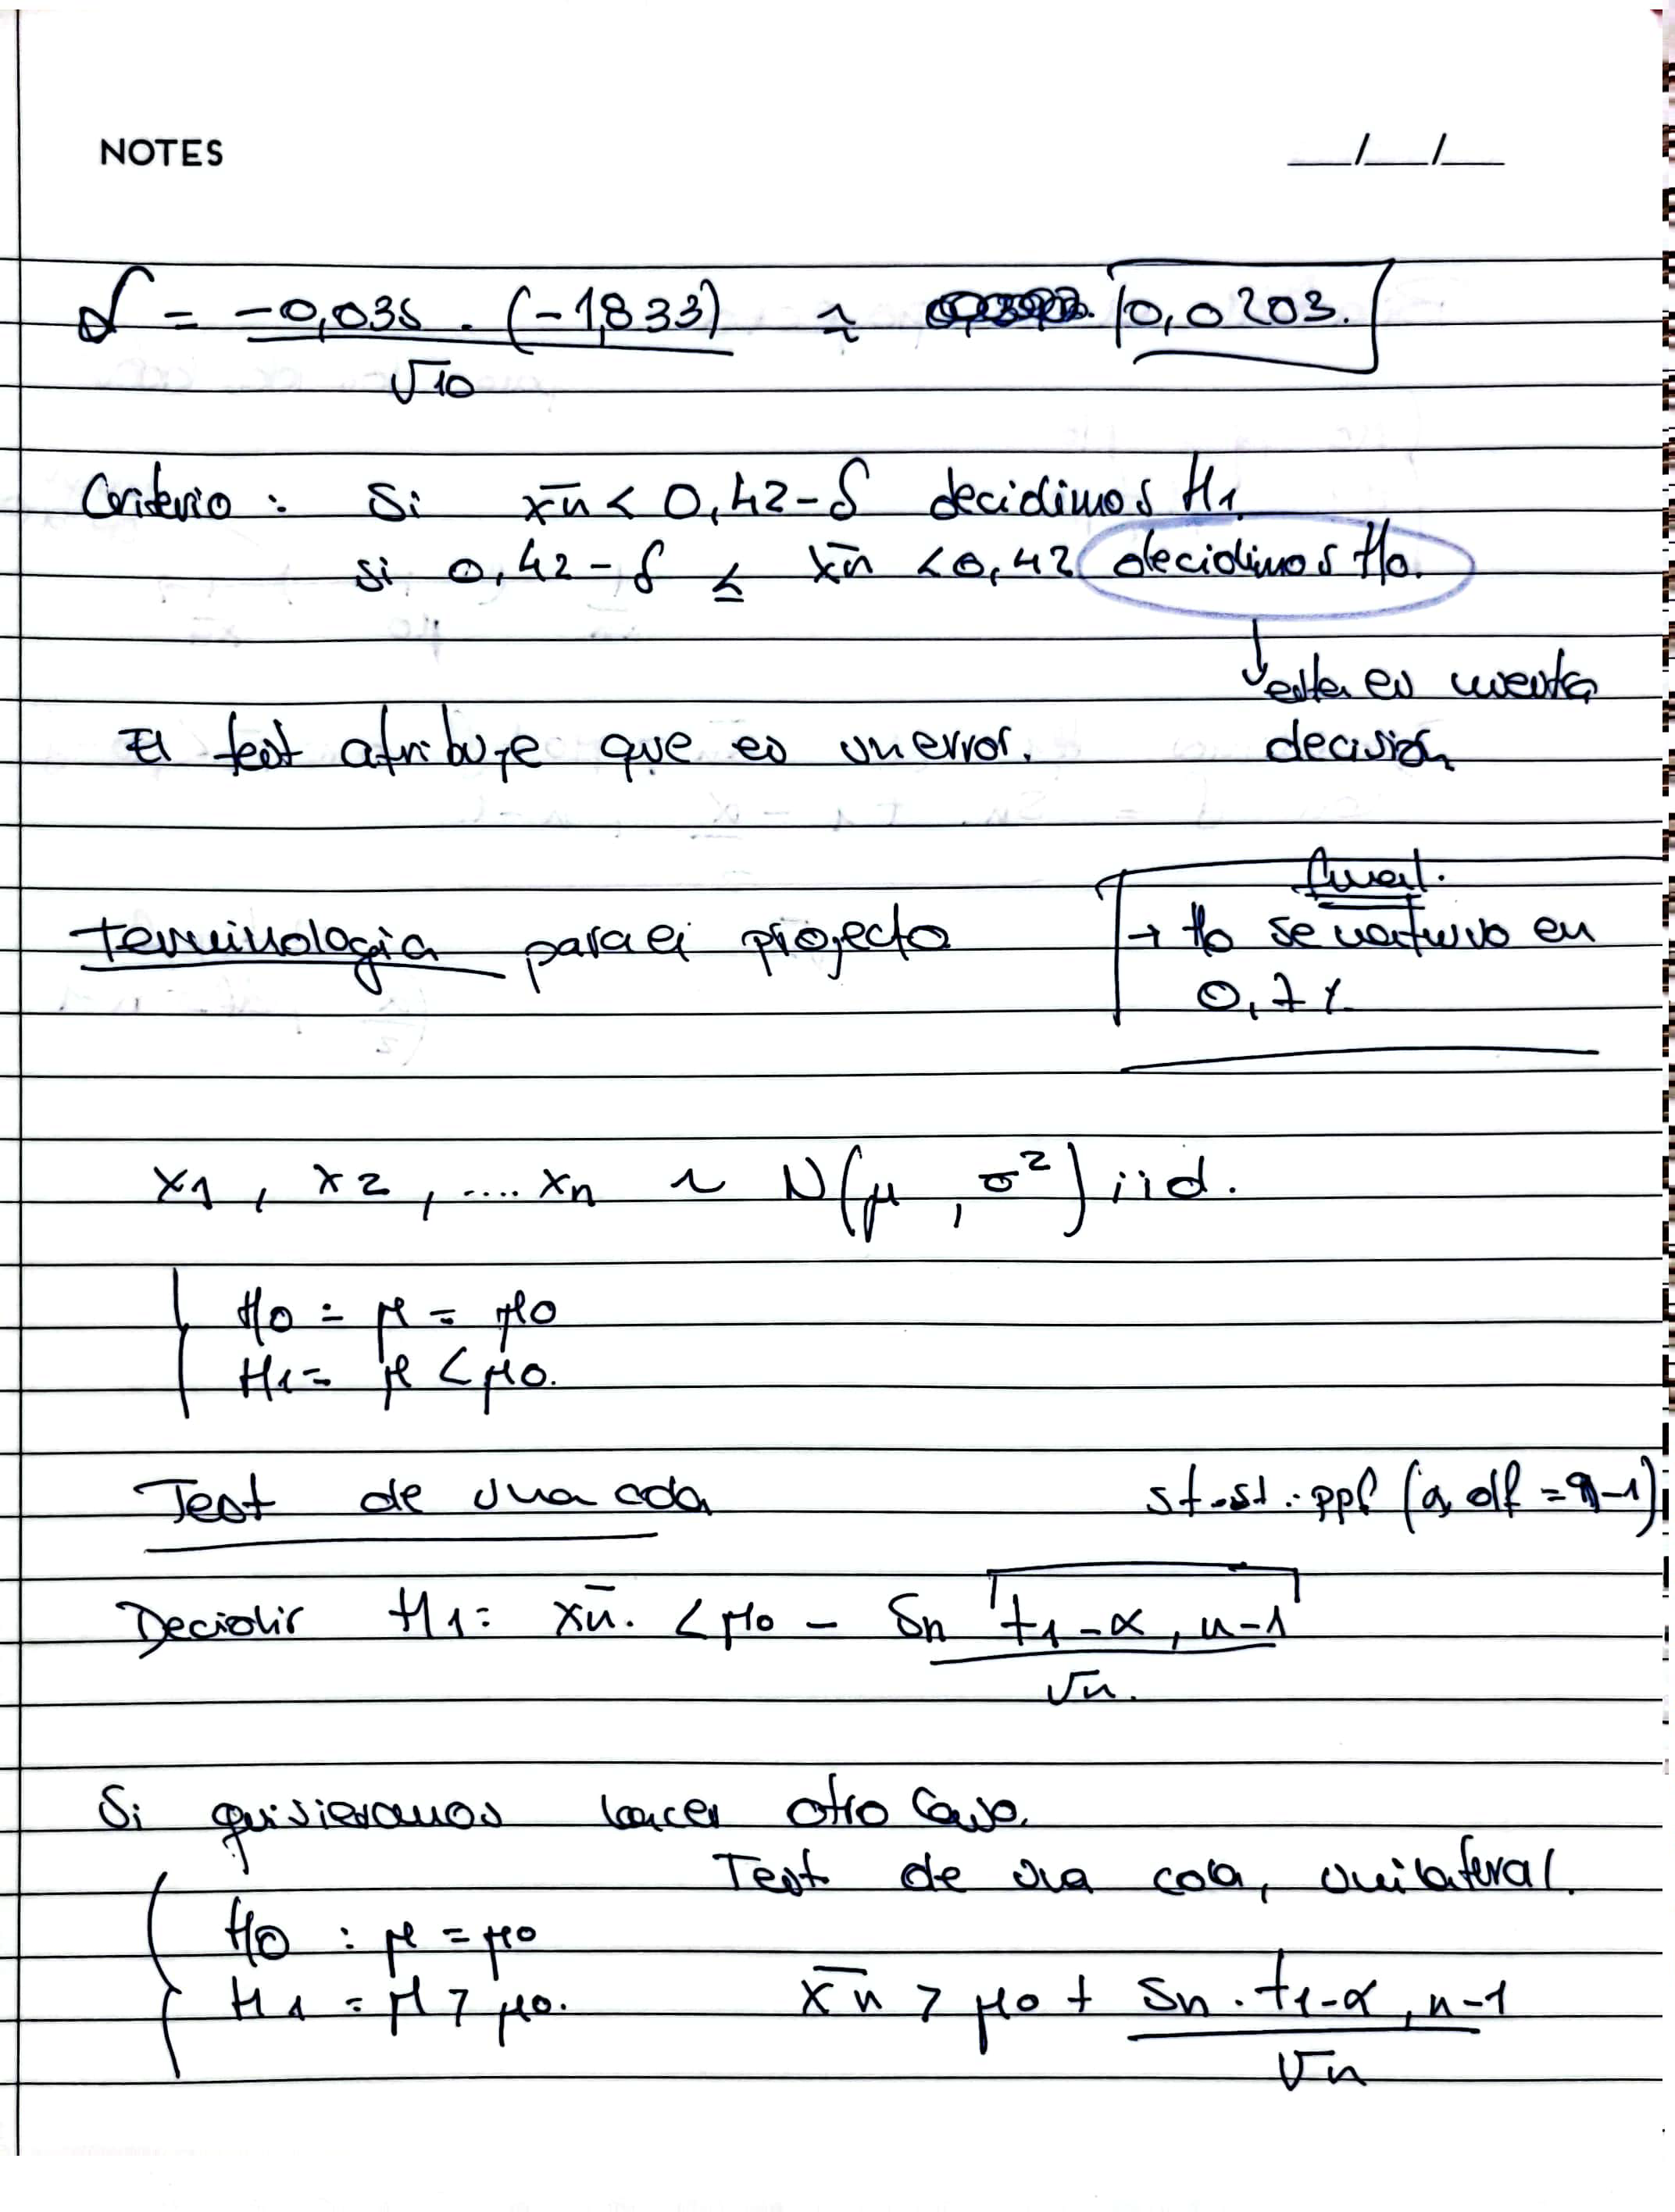 NOTES __/__/__
δ = -0,035 . (-1,833) / √10 ≈ 0,0203.
Criterio : Si x̄n < 0,42-δ decidimos H1
si 0,42-δ ≤ x̄n < 0,42 decidimos Ho.
↓ esta es nuestra
El test atribuye que es un error. decisión
final.
Terminologia para el proyecto → Ho se mantuvo en
0,7%
x1, x2, .... xn ~ N(μ, σ²) iid.
Ho = μ = μo
H1 = μ < μo.
Test de una cola st.st.:ppf (q, df = n-1)
Decidir H1: x̄n. < μo - Sn t1-α, n-1 / √n.
Si quisieramos hacer otro caso.
Test de una cola, unilateral.
Ho : μ = μo
H1 = μ > μo. x̄n > μo + Sn . t1-α, n-1 / √n